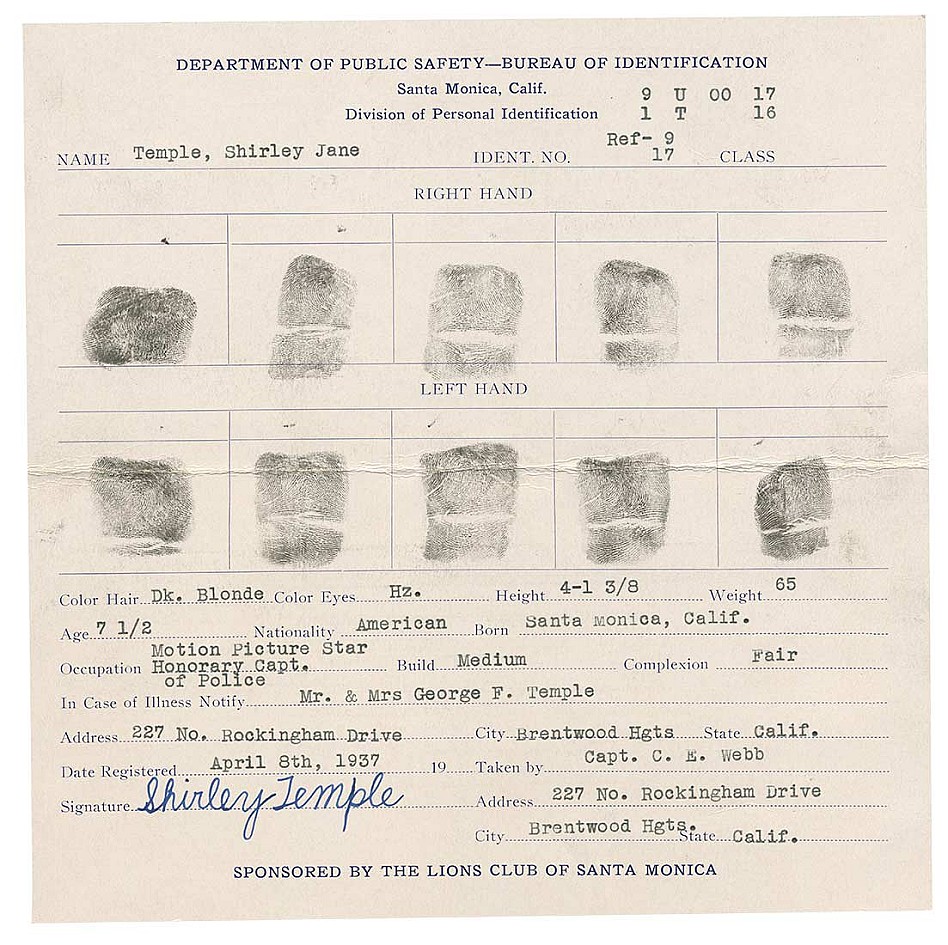 DEPARTMENT OF PUBLIC SAFETY—BUREAU OF IDENTIFICATION
Santa Monica, Calif.
9 U 00 17
Division of Personal Identification 1 T 16
Ref- 9
NAME Temple, Shirley Jane IDENT. NO. 17 CLASS
RIGHT HAND
LEFT HAND
Color Hair Dk. Blonde Color Eyes Hz. Height 4-1 3/8 Weight 65
Age 7 1/2 Nationality American Born Santa Monica, Calif.
Motion Picture Star
Occupation Honorary Capt. Build Medium Complexion Fair
of Police
In Case of Illness Notify Mr. & Mrs George F. Temple
Address 227 No. Rockingham Drive City Brentwood Hgts State Calif.
Date Registered April 8th, 1937 19 Taken by Capt. C. E. Webb
Signature Shirley Temple Address 227 No. Rockingham Drive
City Brentwood Hgts. State Calif.
SPONSORED BY THE LIONS CLUB OF SANTA MONICA